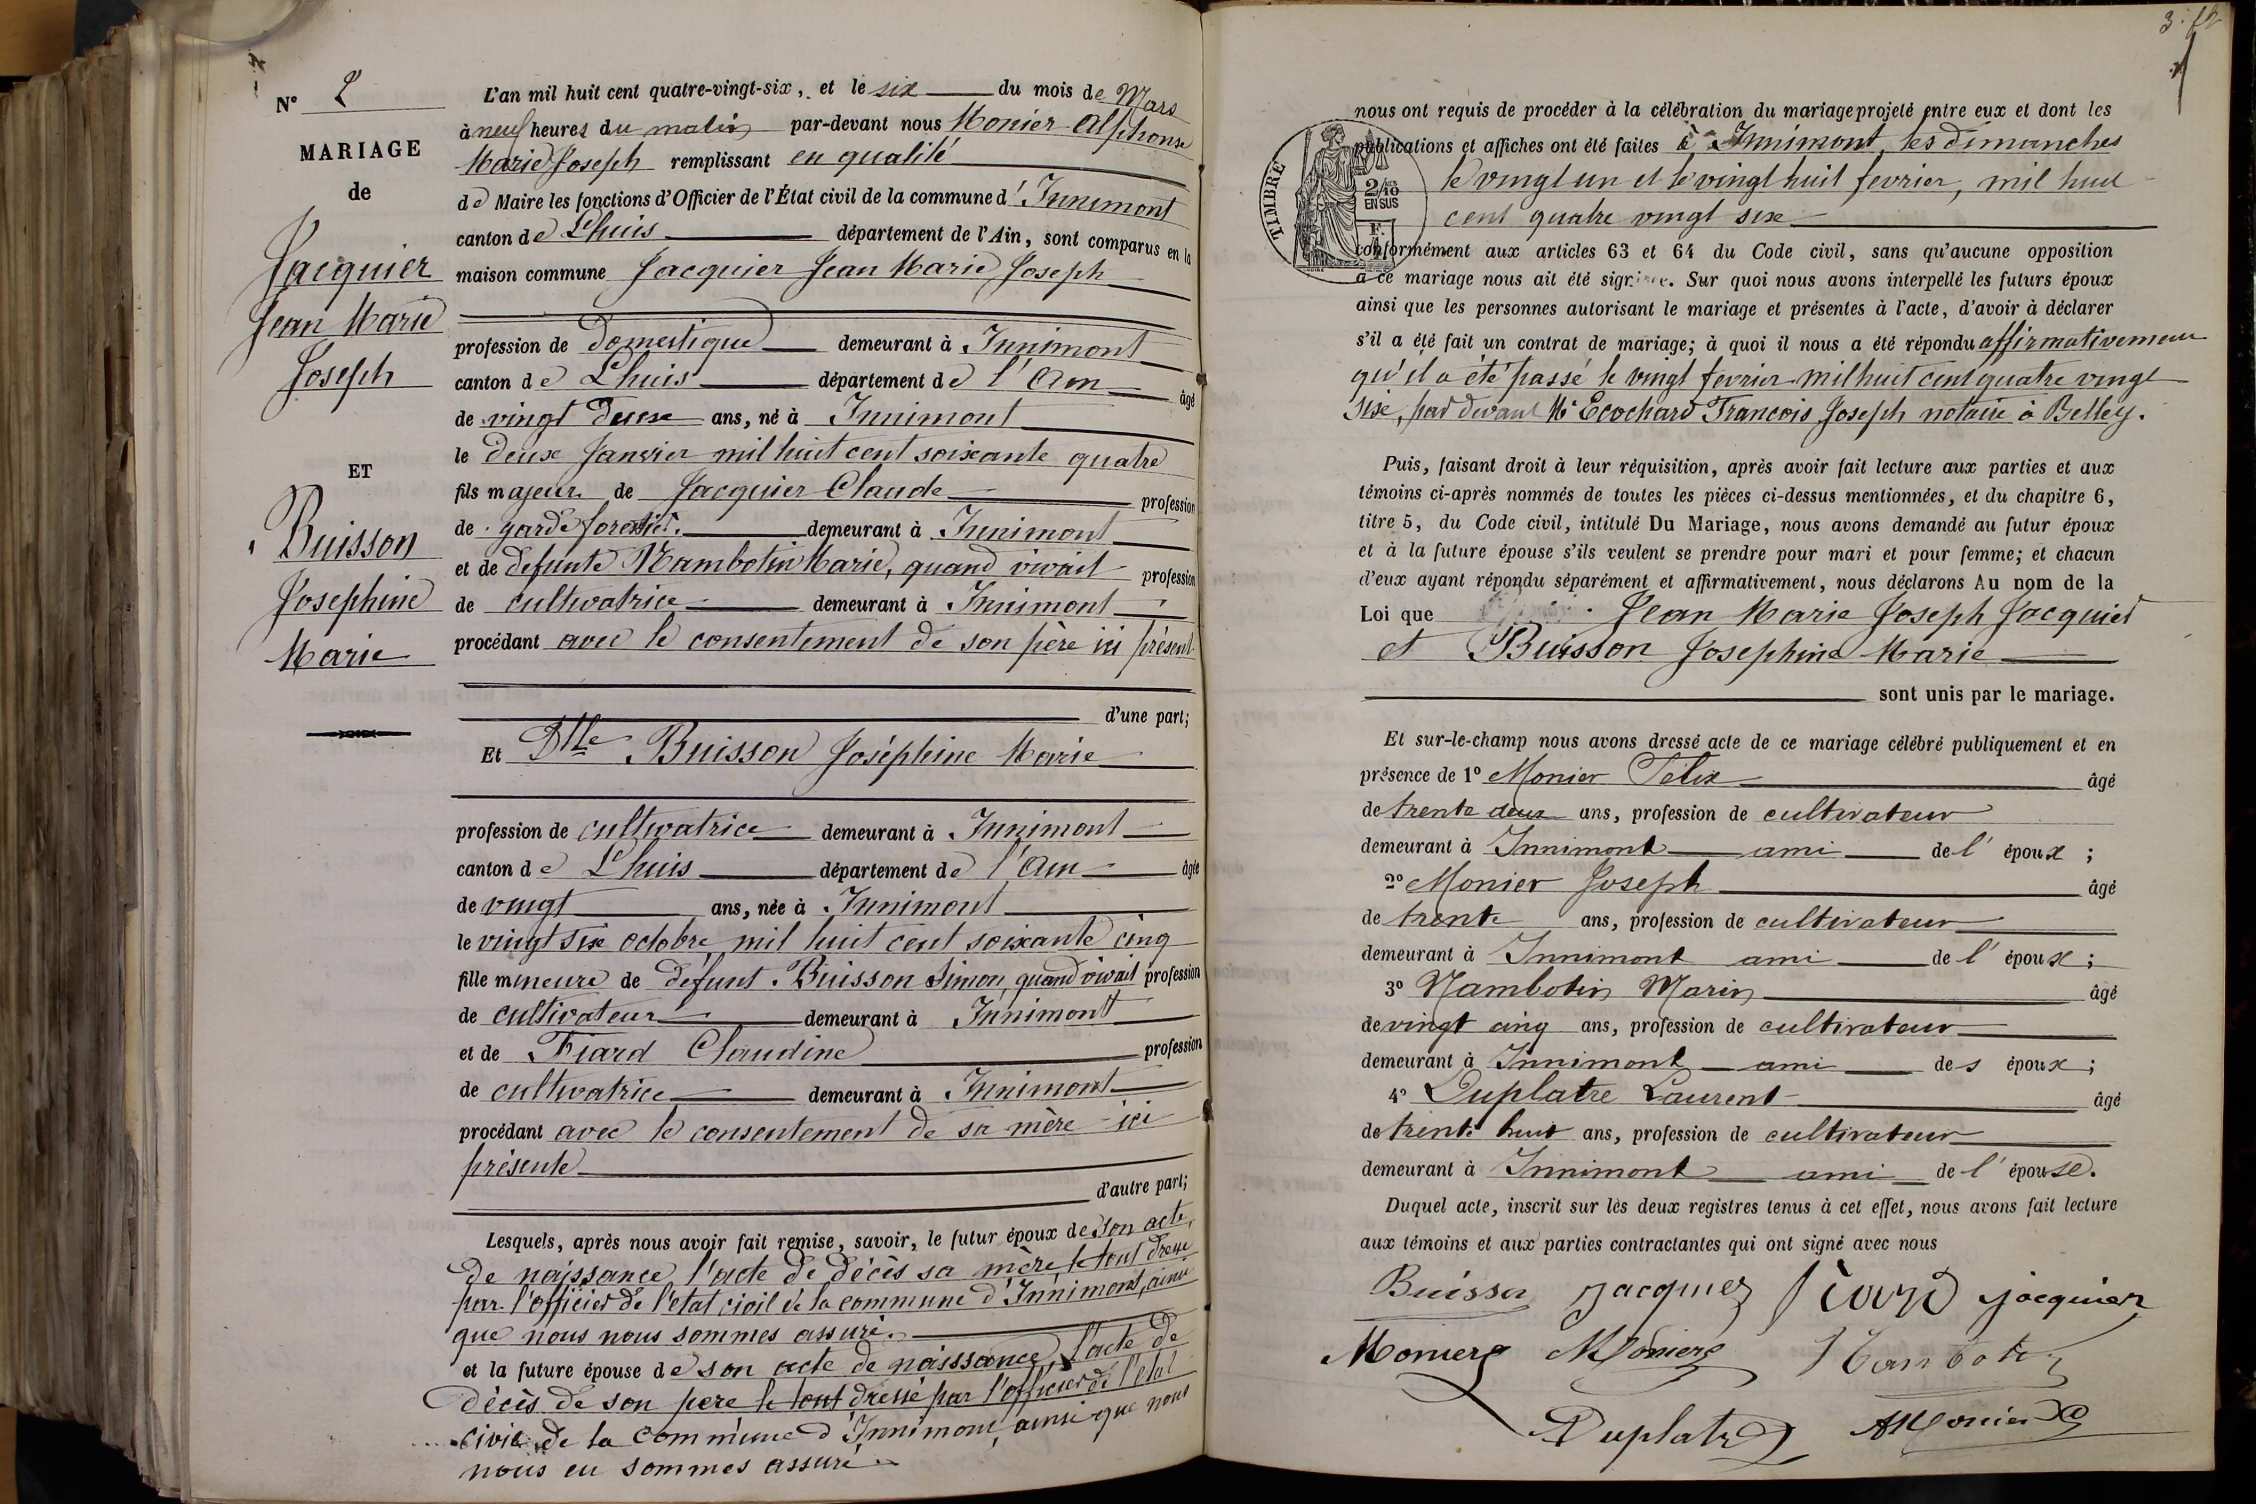 N° 2
MARIAGE
de
Jacquier
Jean Marie
Joseph
ET
Buisson
Josephine
Marie
L'an mil huit cent quatre-vingt-six, et le six du mois de Mars
à neuf heures du matin par-devant nous Monier Alphonse
Marie Joseph remplissant en qualité
de Maire les fonctions d'Officier de l'État civil de la commune d'Innimont
canton de Lhuis département de l'Ain, sont comparus en la
maison commune Jacquier Jean Marie Joseph
profession de Domestique demeurant à Innimont
canton de Lhuis département de l'Ain âgé
de vingt deux ans, né à Innimont
le deux Janvier mil huit cent soixante quatre
fils majeur de Jacquier Claude profession
de garde forestier demeurant à Innimont
et de defunte Nambotin Marie, quand vivait profession
de cultivatrice demeurant à Innimont
procédant avec le consentement de son père ici présent
d'une part;
Et Dlle Buisson Joséphine Marie
profession de cultivatrice demeurant à Innimont
canton de Lhuis département de l'Ain âgée
de vingt ans, née à Innimont
le vingt six octobre mil huit cent soixante cinq
fille mineure de défunt Buisson Simon, quand vivait profession
de cultivateur demeurant à Innimont
et de Fiard Claudine profession
de cultivatrice demeurant à Innimont
procédant avec le consentement de sa mère ici
présente
d'autre part;
Lesquels, après nous avoir fait remise, savoir, le futur époux de son acte
de naissance l'acte de décès sa mère le tout dressé
par l'officier de l'état civil de la commune d'Innimont, ainsi
que nous nous sommes assuré.
et la future épouse de son acte de naisssance, l'acte de
décès de son pere le tout dressé par l'officier de l'état
civil de la commune d'Innimont, ainsi que nous
nous en sommes assuré
3
nous ont requis de procéder à la célébration du mariage projeté entre eux et dont les
publications et affiches ont été faites à Innimont, les dimanches
le vingt un et le vingt huit fevrier, mil huit
cent quatre vingt six
TIMBRE
2/10
EN SUS
conformément aux articles 63 et 64 du Code civil, sans qu'aucune opposition
à ce mariage nous ait été signifiée. Sur quoi nous avons interpellé les futurs époux
ainsi que les personnes autorisant le mariage et présentes à l'acte, d'avoir à déclarer
s'il a été fait un contrat de mariage; à quoi il nous a été répondu affirmativement
qu'il a été passé le vingt fevrier mil huit cent quatre vingt
six, par devant Me Ecochard François Joseph notaire à Belley.
Puis, faisant droit à leur réquisition, après avoir fait lecture aux parties et aux
témoins ci-après nommés de toutes les pièces ci-dessus mentionnées, et du chapitre 6,
titre 5, du Code civil, intitulé Du Mariage, nous avons demandé au futur époux
et à la future épouse s'ils veulent se prendre pour mari et pour femme; et chacun
d'eux ayant répondu séparément et affirmativement, nous déclarons Au nom de la
Loi que Jean Marie Joseph Jacquier
et Buisson Josephine Marie
sont unis par le mariage.
Et sur-le-champ nous avons dressé acte de ce mariage célébré publiquement et en
présence de 1° Monier Félix âgé
de trente deux ans, profession de cultivateur
demeurant à Innimont ami de l'époux;
2° Monier Joseph âgé
de trente ans, profession de cultivateur
demeurant à Innimont ami de l'époux;
3° Nambotin Marin âgé
de vingt cinq ans, profession de cultivateur
demeurant à Innimont ami des époux;
4° Duplatre Laurent âgé
de trente huit ans, profession de cultivateur
demeurant à Innimont ami de l'épouse.
Duquel acte, inscrit sur les deux registres tenus à cet effet, nous avons fait lecture
aux témoins et aux parties contractantes qui ont signé avec nous
Buisson Jacquier Fiard jacquier
Monier Monier Nambotin
Duplatre AMonier